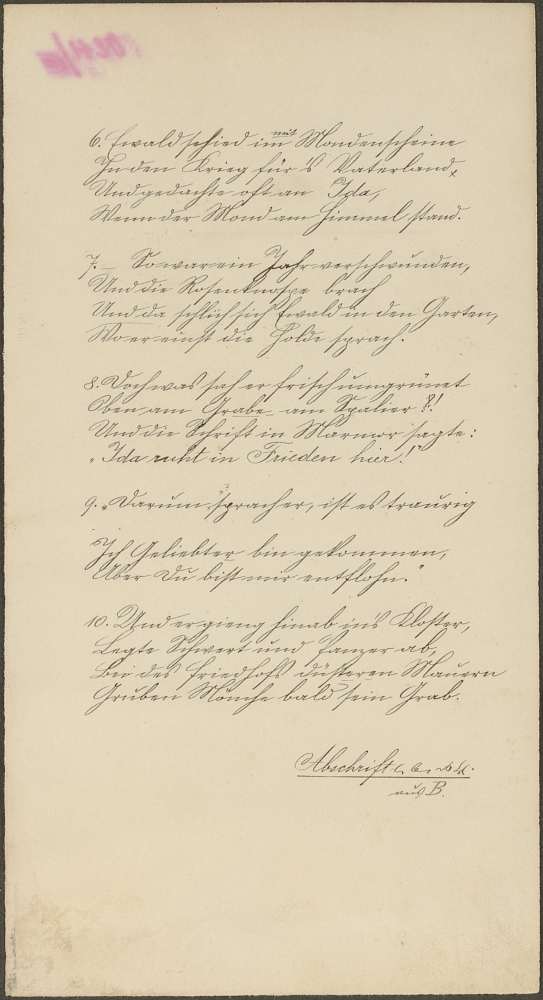 mit
6. Ewald schied im Mondenscheine
In den Krieg für's Vaterland,
Und gedachte oft an Ida,
Wenn der Mond am Himmel stand.
7. – So war ein Jahr verschwunden,
Und die Rosenknospe brach
Und da schlich sich Ewald in den Garten,
Wo er einst die Holde sprach.
8. Doch was sah er frisch umgrünet
Oben am Grabe am Spalier?!
Und die Schrift in Marmor sagte:
"Ida ruht in Frieden hier!"
9. "Darum", sprach er, ist es traurig
Ich Geliebter bin gekommen,
Aber Du bist mir entflohn."
10. Und er gieng hinab in's Kloster,
Legte Schwert und Panzer ab,
Bei des Friedhofs düsteren Mauern
Gruben Mönche bald sein Grab.
Abschrift
aus B.